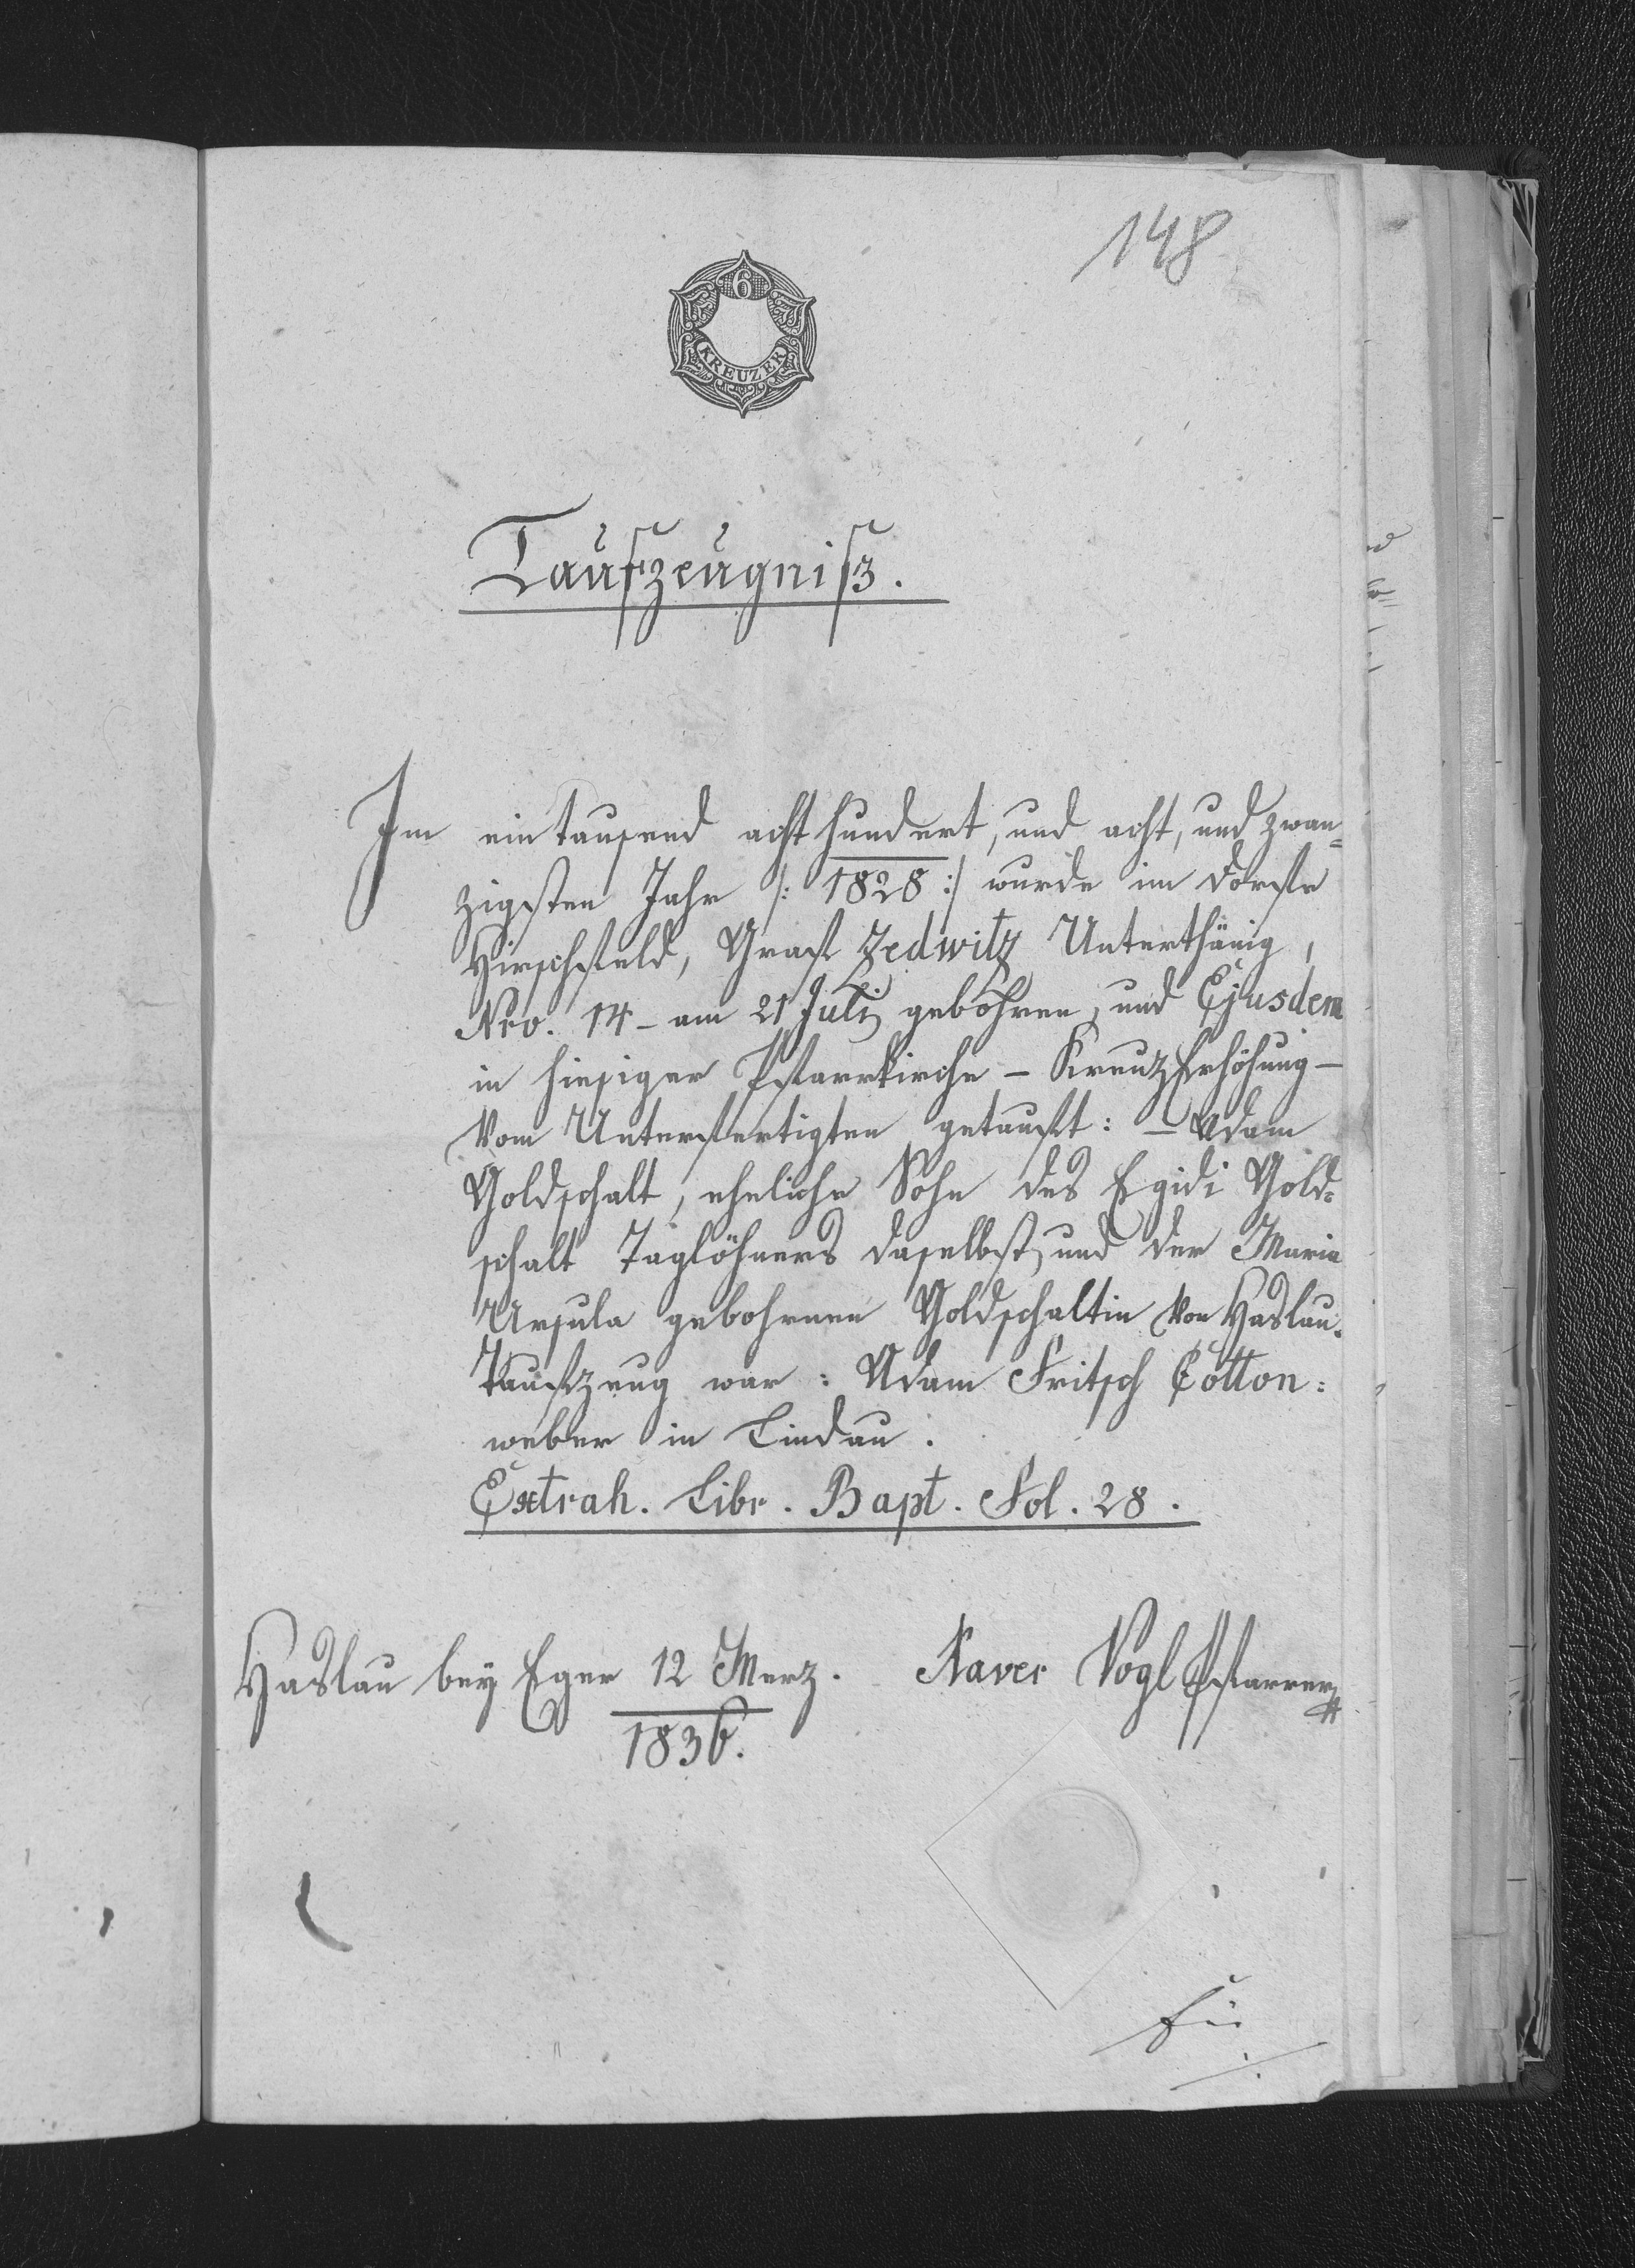 148
6
KREUZER
Taufzeugniß.
Im ein tausend acht hundert, und acht, und zwan=
zigsten Jahr /: 1828 :/ wurde im Dorfe
Hirschfeld, Graf Zedwitz Unterthänig,
Nro. 14 - am 21 Juli gebohren, und Ejusdem
in hiesiger Pfarrkirche - Kreuz Erhöhung -
vom Unterfertigten getauft: - Adam
Goldschalt, eheliche Sohn des Egidi Gold=
schalt Taglöhners daselbst, und der Maria
Ursula gebohrnen Goldschaltin von Haslau.
Taufzeug war: Adam Fritsch Cotton=
weber in Lindau.
Extrah. Libr. Bapt. Fol. 28.
Haslau bey Eger 12 Merz. Xaver Vogl Pfarrer
1836.